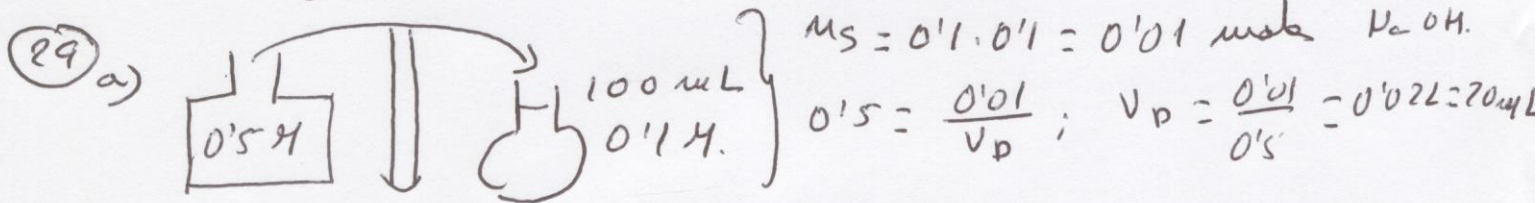 29 a)
0'5 M
100 mL
0'1 M.
ns = 0'1 · 0'1 = 0'01 moles NaOH.
0'5 = 0'01 / VD ; VD = 0'01 / 0'5 = 0'02L = 20mL